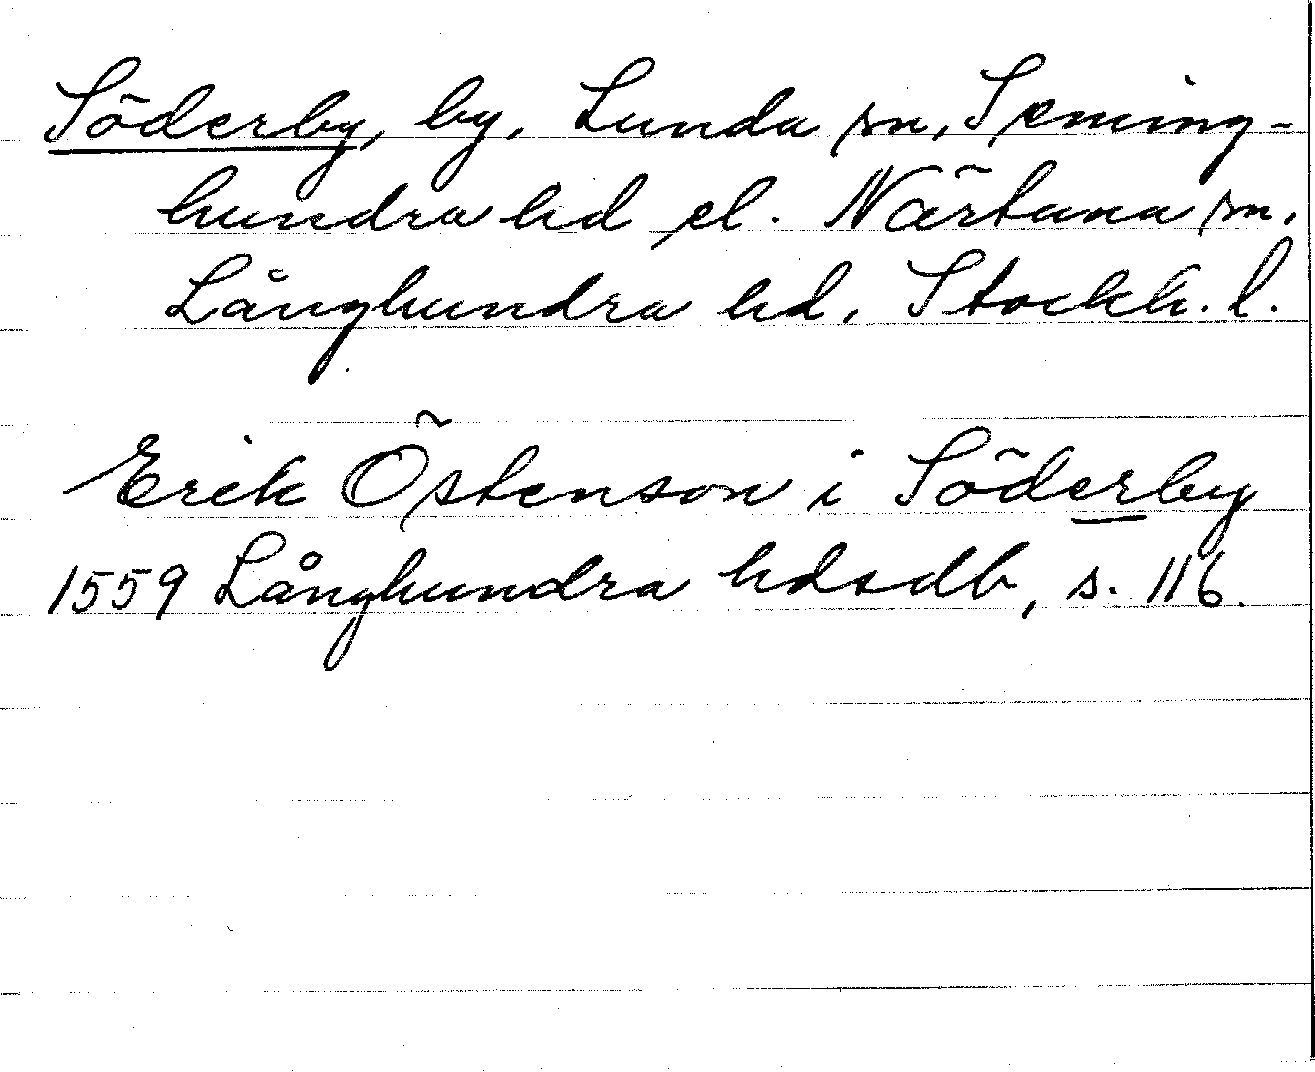 Söderby, by, Lunda sn, Seming-
hundra hd el. Närtuna sn,
Långhundra hd, Stockh. l.
Erik Östenson i Söderby
1559 Långhundra hdsdb, s. 116.